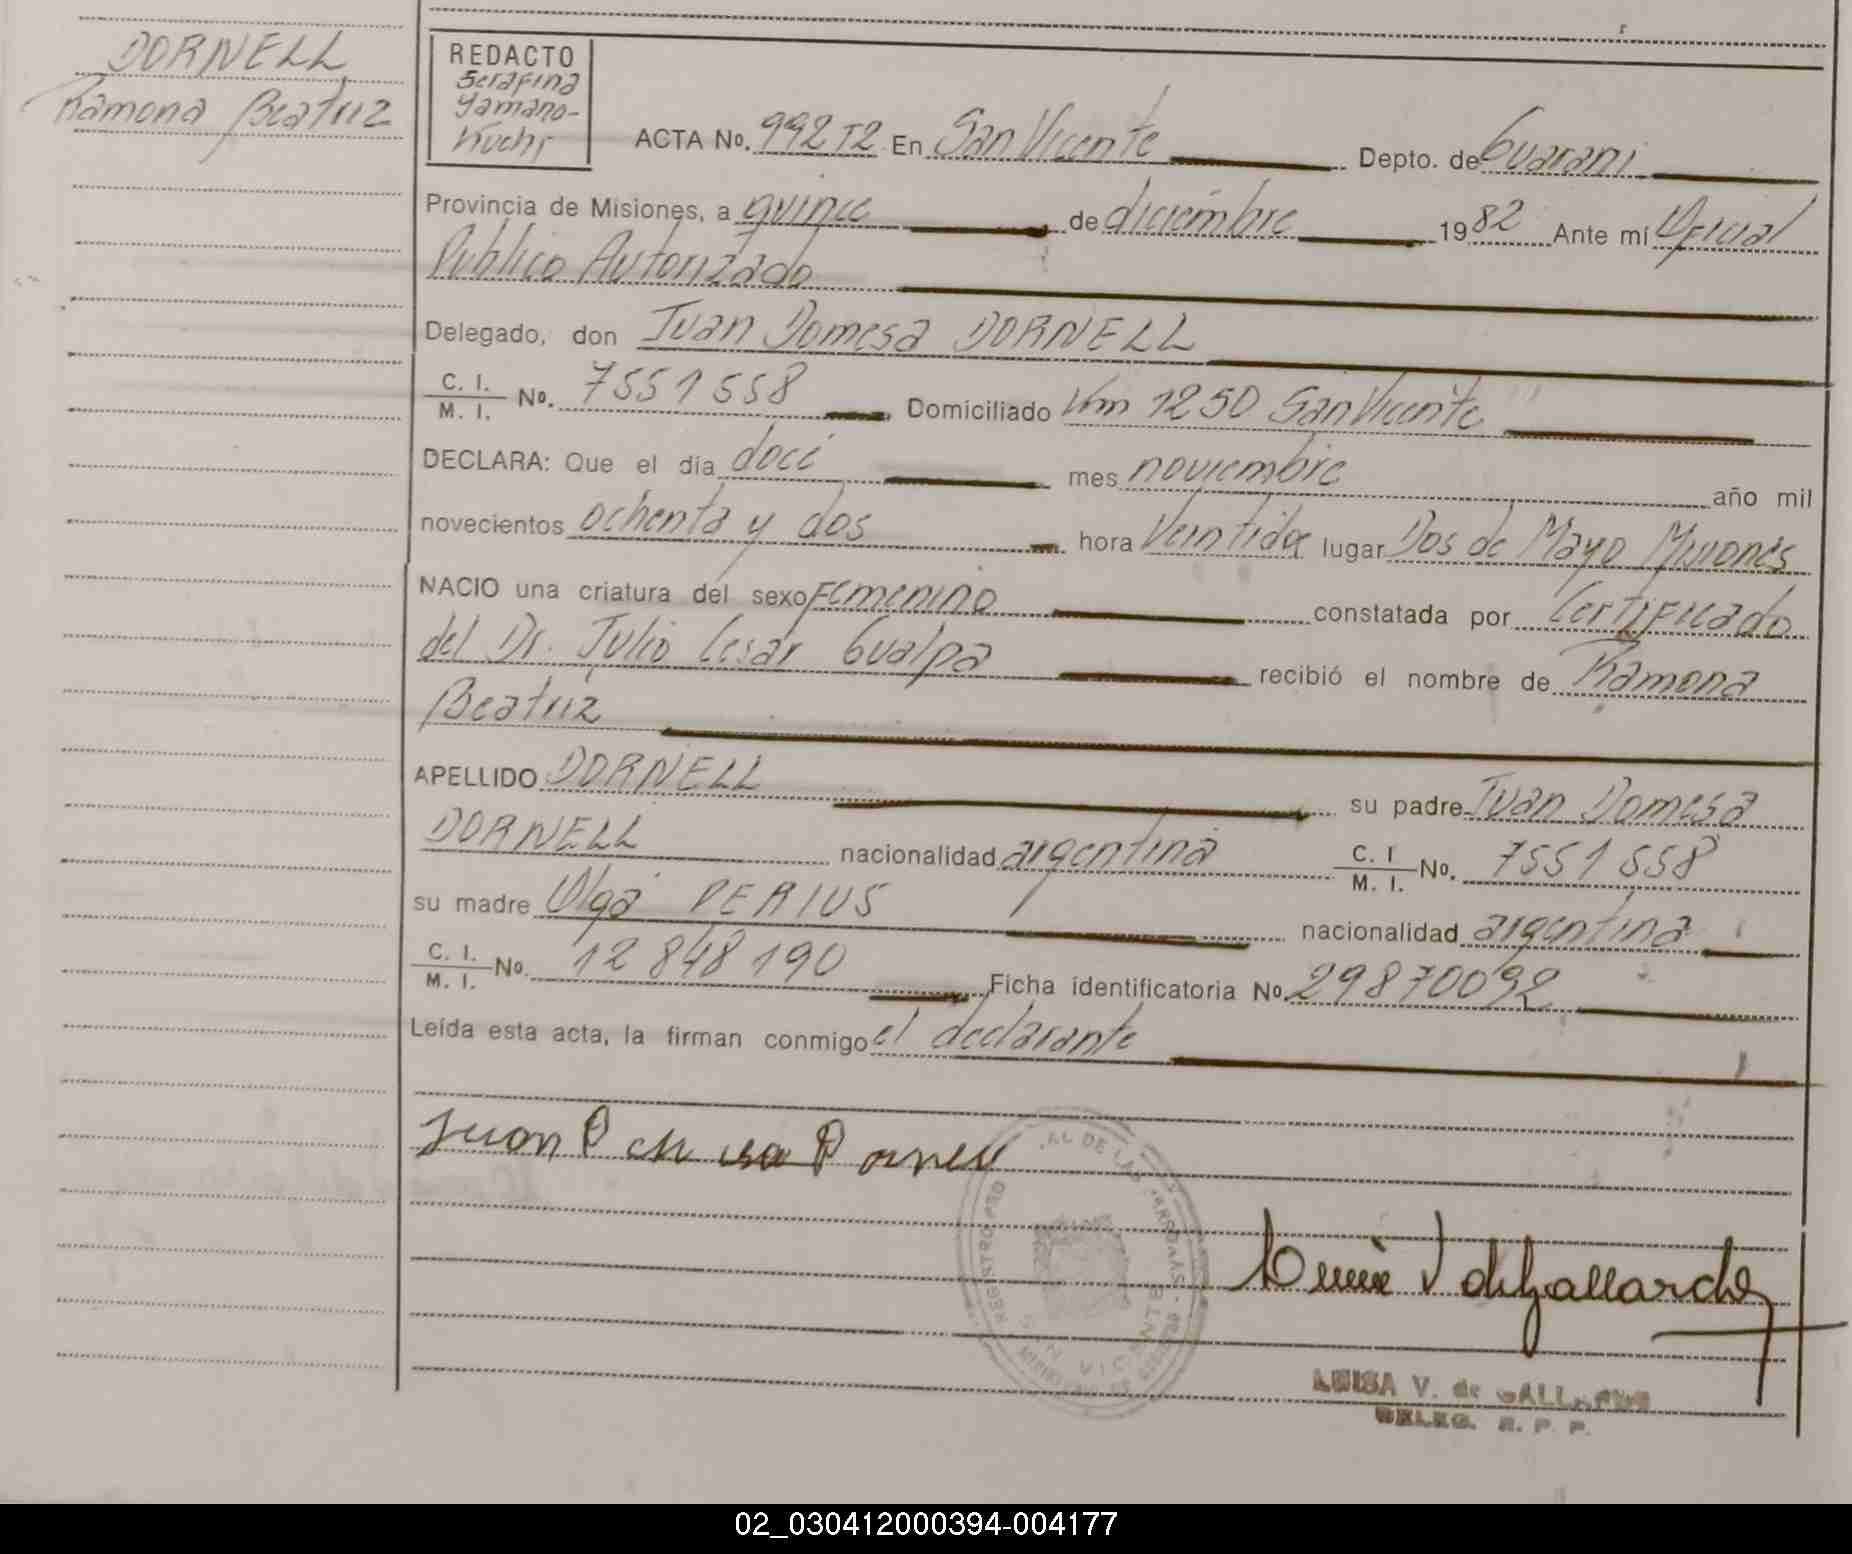 DORNELL
Ramona Beatriz
REDACTO
Serafina
Yamano-
Kuchi
ACTA No. 992 T2 En San Vicente Depto. de Guarani
Provincia de Misiones, a quince de diciembre 1982 Ante mí Oficial
Público Autorizado
Delegado, don Juan Domesa DORNELL
C. I. / M. I. No. 7551558 Domiciliado Km 1250 San Vicente
DECLARA: Que el día doce mes noviembre año mil
novecientos ochenta y dos hora Veintidos lugar Dos de Mayo Misiones
NACIO una criatura del sexo Femenino constatada por Certificado
del Dr. Julio Cesar Gualpa recibió el nombre de Ramona
Beatriz
APELLIDO DORNELL su padre Juan Domesa
DORNELL nacionalidad argentina C. I / M. I. No. 7551558
su madre Olga PERIUS nacionalidad argentina
C. I. / M. I. No. 12848190 Ficha identificatoria No 29870092
Leída esta acta, la firman conmigo el declarante
REGISTRO AL DE LAS
LUISA V. de GALLARDO
DELEG. R. P. P.
02_030412000394-004177